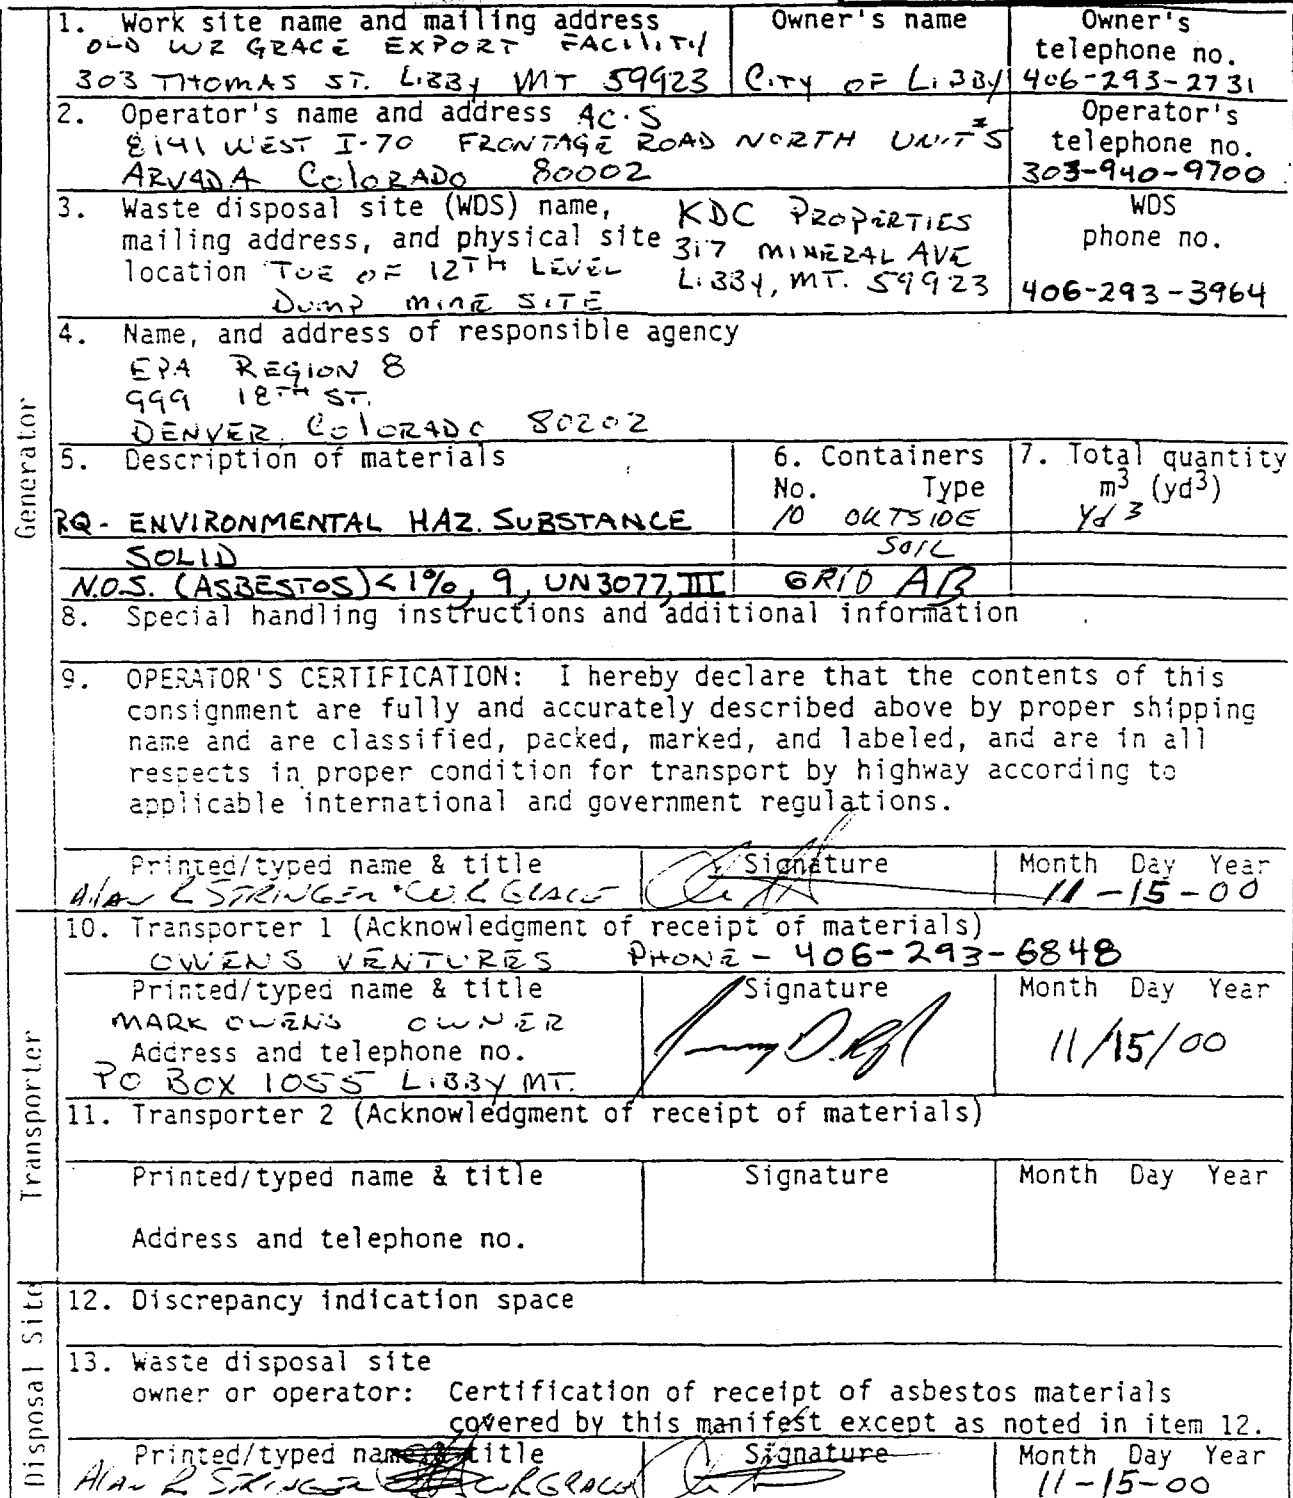 1. Work site name and mailing address
OLD WR GRACE EXPORT FACILITY
303 THOMAS ST. LIBBY MT 59923
Owner's name
CITY OF LIBBY
Owner's
telephone no.
406-293-2731
2. Operator's name and address AC.S
8141 WEST I-70 FRONTAGE ROAD NORTH UNIT #5
ARVADA COLORADO 80002
Operator's
telephone no.
303-940-9700
3. Waste disposal site (WDS) name,
mailing address, and physical site
location TOE OF 12TH LEVEL
DUMP MINE SITE
KDC PROPERTIES
317 MINERAL AVE
LIBBY, MT. 59923
WDS
phone no.
406-293-3964
4. Name, and address of responsible agency
EPA REGION 8
999 18TH ST.
DENVER, COLORADO 80202
Generator
5. Description of materials
RQ- ENVIRONMENTAL HAZ. SUBSTANCE
SOLID
N.O.S. (ASBESTOS)<1%, 9, UN3077, III
6. Containers
No. Type
10 OUTSIDE
SOIL
GRID AB
7. Total quantity
m3 (yd3)
Yd3
8. Special handling instructions and additional information
9. OPERATOR'S CERTIFICATION: I hereby declare that the contents of this
consignment are fully and accurately described above by proper shipping
name and are classified, packed, marked, and labeled, and are in all
respects in proper condition for transport by highway according to
applicable international and government regulations.
Printed/typed name & title
Alan R STRINGER W.R GRACE
Signature
Month Day Year
11-15-00
Transporter
10. Transporter 1 (Acknowledgment of receipt of materials)
OWENS VENTURES PHONE - 406-293-6848
Printed/typed name & title
MARK OWENS OWNER
Address and telephone no.
PO BOX 1055 LIBBY MT.
Signature
Month Day Year
11/15/00
11. Transporter 2 (Acknowledgment of receipt of materials)
Printed/typed name & title
Signature
Month Day Year
Address and telephone no.
Disposal Site
12. Discrepancy indication space
13. Waste disposal site
owner or operator: Certification of receipt of asbestos materials
covered by this manifest except as noted in item 12.
Printed/typed name & title
Alan R STRINGER W R GRACE
Signature
Month Day Year
11-15-00